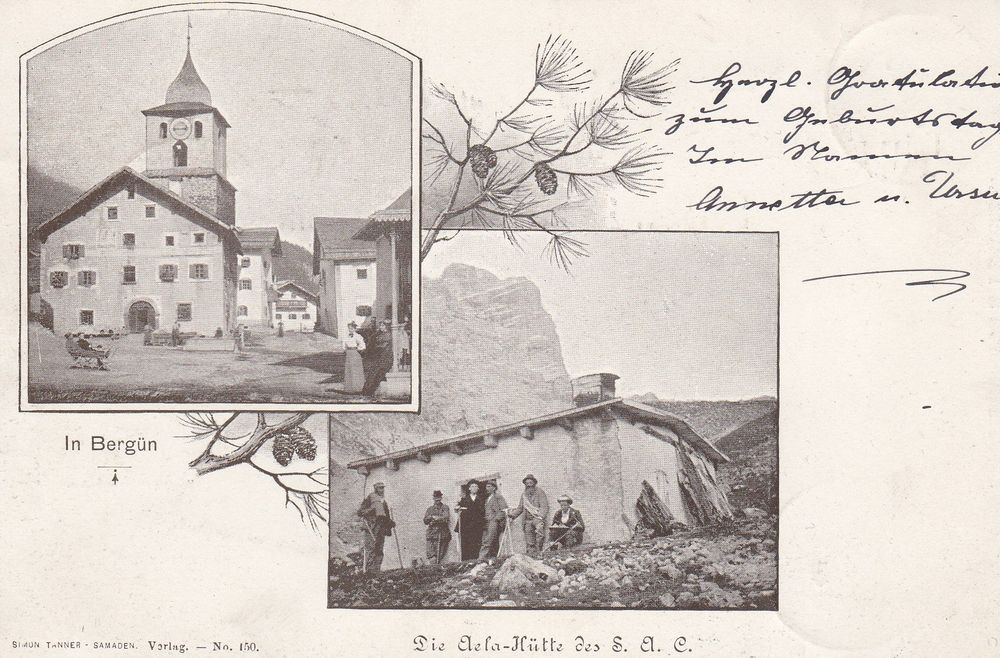 Herzl. Gratulatio
zum Geburtstag
Im Namen
Annetta u. Ursu
In Bergün
SIMON TANNER - SAMADEN. Verlag. — No. 150.
Die Aela-Hütte des S. A. C.